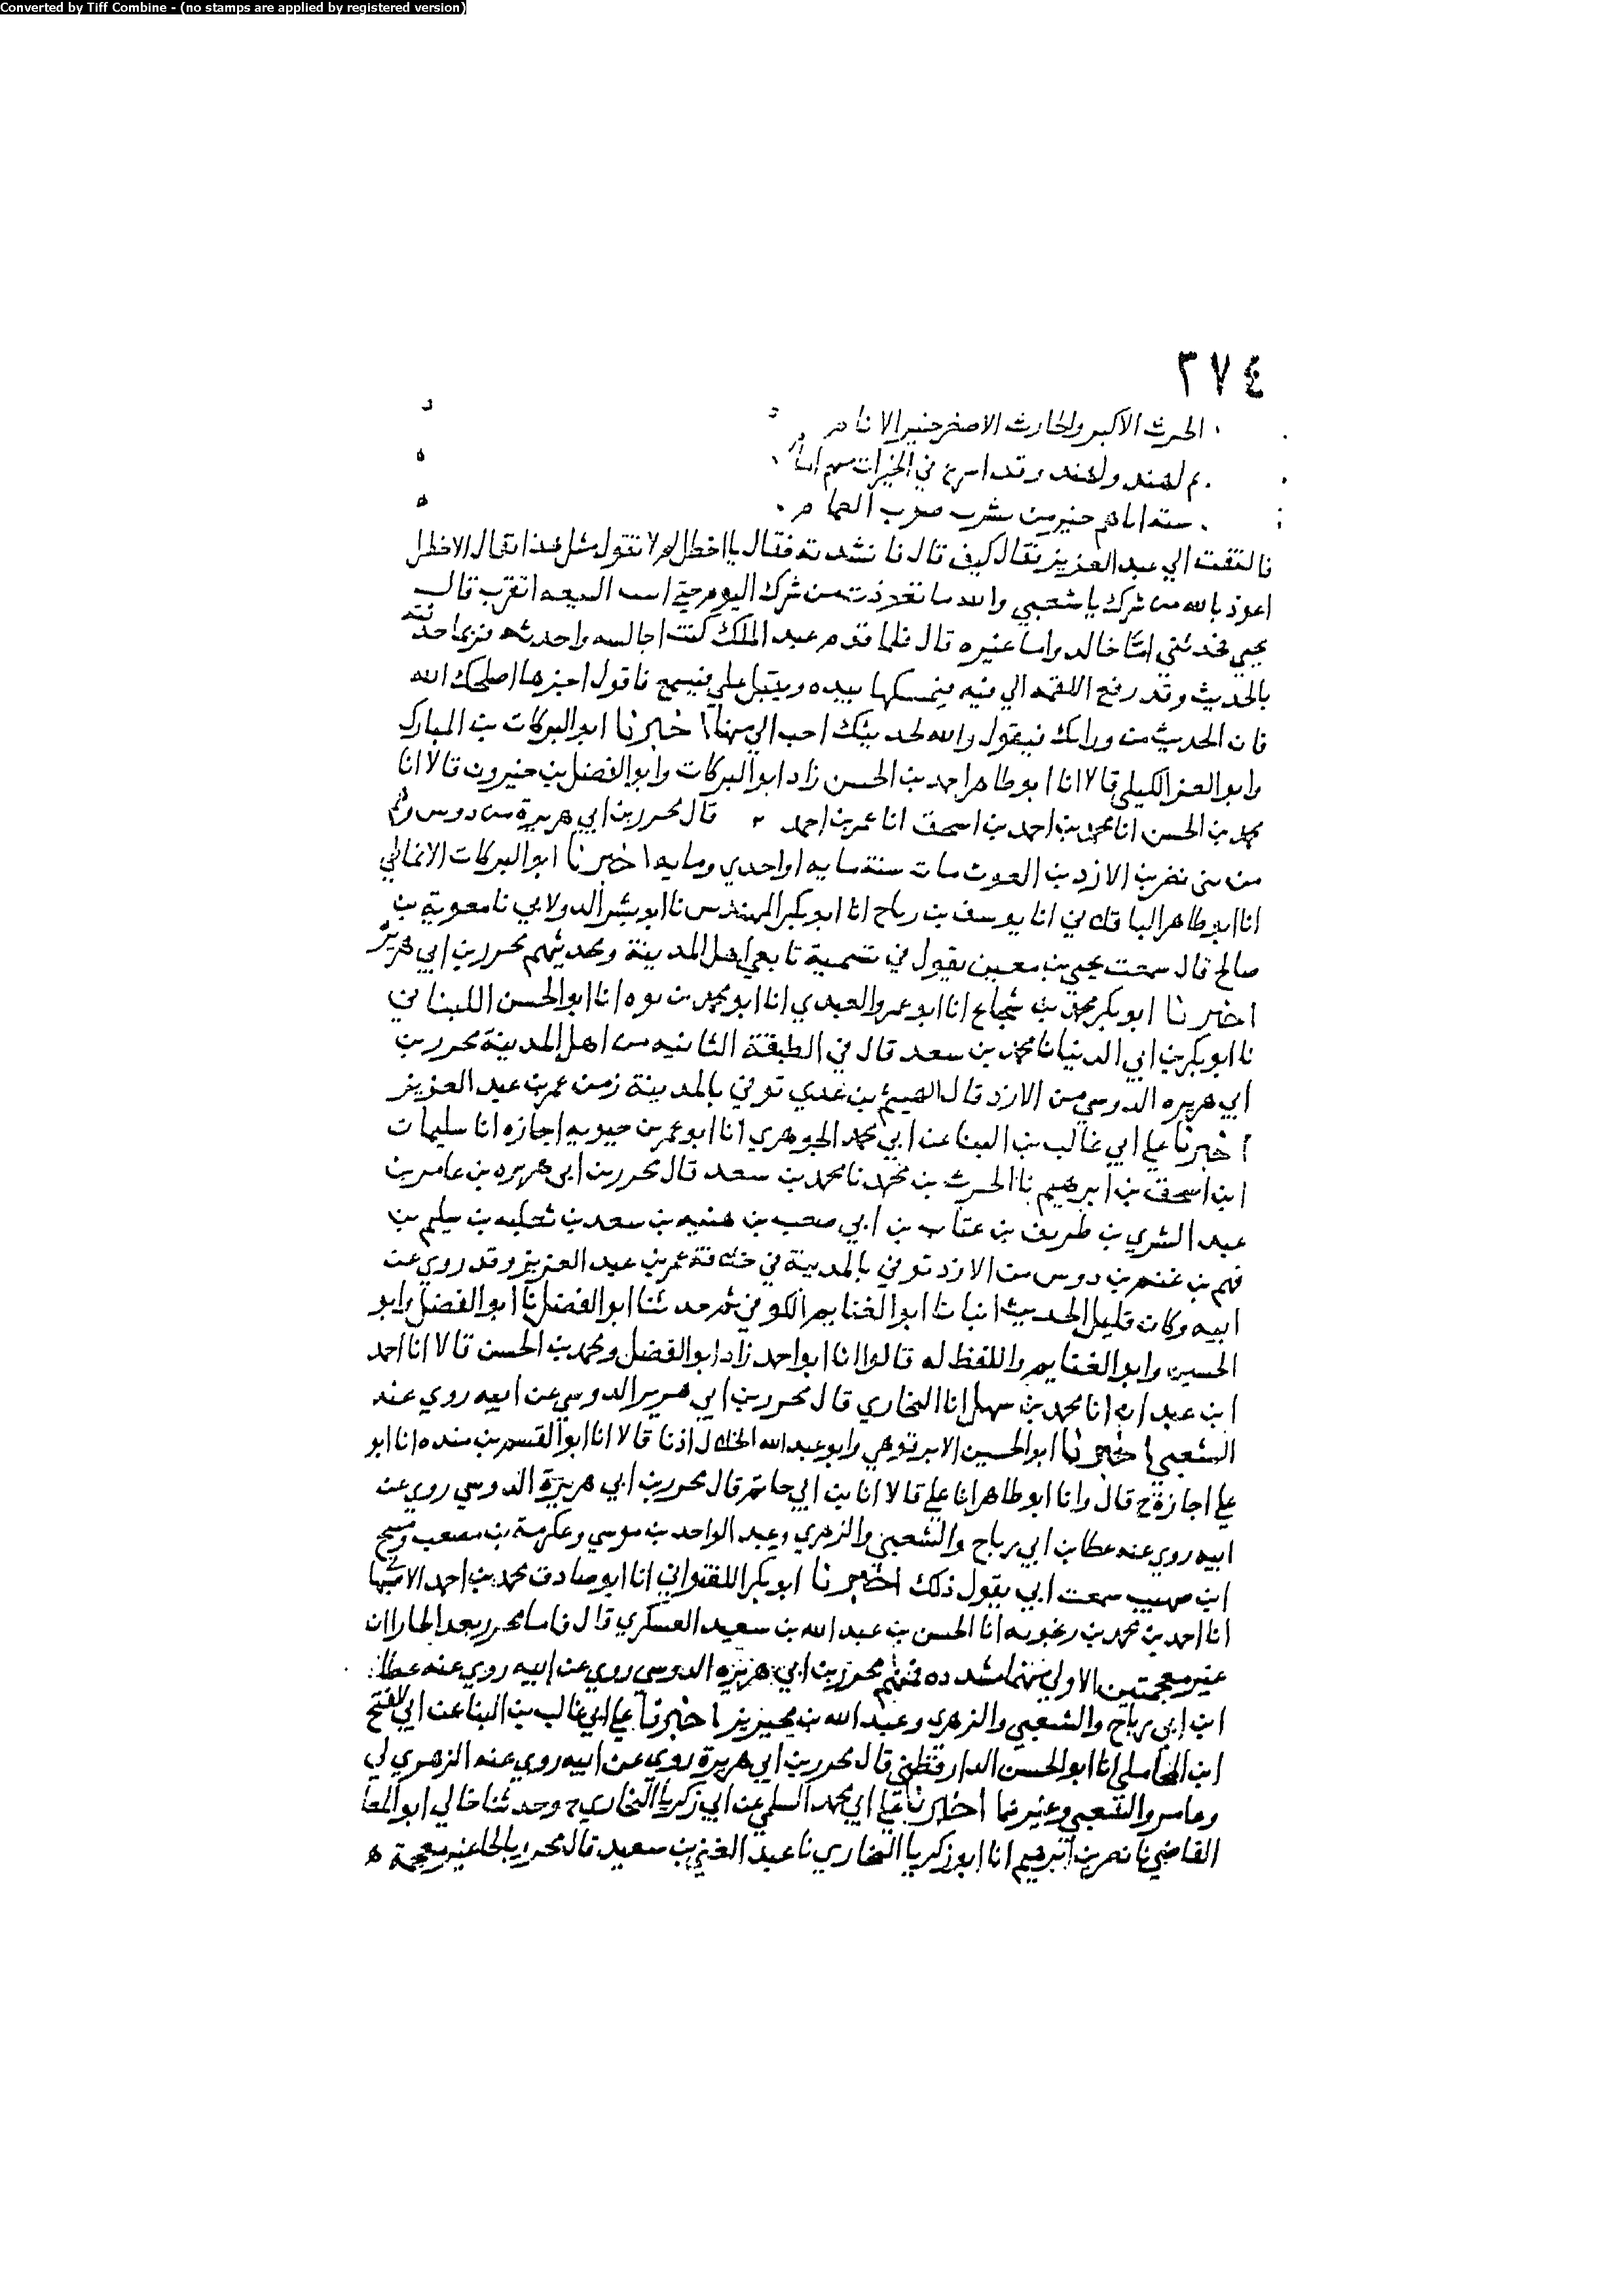 Converted by Tiff Combine - (no stamps are applied by registered version)
٣٧٤
الحرث الاكبر والحارث الاصغر خير الانام
ثم لهند ولهند وقد اسرع في الخيرات منهم امام
ستة اباهم خير من يشرب صوب الغمام
فالتفت الي عبد العزيز فقال كيف قال فانشدته فقال يا اخطل لم لا تقول مثل هذا فقال الاخطل
اعوذ بالله من شرك يا شعبي والله ما تعوذت من شرك اليوم حتى اتقرب قال
يحيى فحدثني امثا خالد واما غيره قال فلما قدم عبد الملك كنت اجالسه واحدثه فربما حدثته
بالحديث وقد رفع اللقمه الي فيه فيمسكها بيده ويقبل علي فيسمع فاقول اجزها اصلحك الله
فان الحديث من ورائك فيقول والله لحديثك احب الي منها اخبرنا ابو البركات بن المبارك
وابو العز الكيلي قالا انا ابو طاهر احمد بن الحسن زاد ابو البركات وابو الفضل بن خيرون قالا انا
محمد بن الحسن انا محمد بن احمد بن اسحق انا عمر بن احمد قال محرر بن ابي هريرة من دوس
من بني نصر بن الازد بن الغوث مات سنة مايه او احدي ومايه اخبرنا ابو البركات الانماطي
انا ابو طاهر الباقلاني انا يوسف بن رباح انا ابو بكر المهندس نا ابو بشر الدولابي نا معوية بن
صالح قال سمعت يحيى بن معين يقول في تسمية تابعي اهل المدينة ومحدثيهم محرر بن ابي هريرة
اخبرنا ابو بكر محمد بن شجاع انا ابو عمرو العبدي انا ابو محمد بن يوه انا ابو الحسن اللبناني
نا ابو بكر بن ابي الدنيا نا محمد بن سعد قال في الطبقة الثانيه من اهل المدينة محرر بن
ابي هريره الدوسي من الازد قال الهيثم بن عدي توفي بالمدينة زمن عمر بن عبد العزيز
اخبرنا علي ابي غالب بن البنا عن ابي محمد الجوهري انا ابو عمر بن حيويه اجازه انا سليمان
ابن اسحق بن ابرهيم نا الحرث بن محمد نا محمد بن سعد قال محرر بن ابي هريره بن عامر بن
عبد الشري بن طريف بن عتاب بن ابي صعب بن هنيه بن سعد بن ثعلبه بن سليم بن
فهم بن غنم بن دوس من الازد توفي بالمدينة في خلافة عمر بن عبد العزيز وقد روي عن
ابيه وكان قليل الحديث انبانا ابو الغنايم الكوفي ثم حدثنا ابو الفضل نا ابو الفضل وابو
الحسين وابو الغنايم واللفظ له قالوا انا ابو احمد زاد ابو الفضل ومحمد بن الحسن قالا انا احمد
ابن عبدان انا محمد بن سهل انا البخاري قال محرر بن ابي هرير الدوسي عن ابيه روي عنه
الشعبي اخبرنا ابو الحسين الابرقوهي وابو عبد الله الخلال اذنا قالا انا ابو القسم بن منده انا ابو
علي اجازة ح قال وانا ابو طاهر انا علي قالا انا بن ابي حاتم قال محرر بن ابي هريرة الدوسي روي عن
ابيه روي عنه عطا بن ابي رباح والشعبي والزهري وعبد الواحد بن موسي وعكرمة بن مصعب
ابن صهيب سمعت ابي يقول ذلك اخبرنا ابو بكر اللفتواني انا ابو صادق محمد بن احمد الاصبها
انا احمد بن محمد بن زنجويه انا الحسن بن عبد الله بن سعيد العسكري قال فاما محرر بعد الحا راان
غير معجمتين الاولي منهما مشدده فمنهم محرر بن ابي هريره الدوسي روي عن ابيه روي عنه عطا
ابن ابي رباح والشعبي والزهري وعبد الله بن محيريز اخبرنا علي ابي غالب بن البنا عن ابي الفتح
ابن المحاملي انا ابو الحسن الدارقطني قال محرر بن ابي هريرة روي عن ابيه روي عنه الزهري
وعامر والشعبي وغيرهما اخبرنا علي ابي محمد السلمي عن ابي زكريا البخاري ح وحدثنا خالي ابو المعا
القاضي نا نصر بن ابرهيم انا ابو زكريا البخاري نا عبد الغني بن سعيد قال محرر بالحا غير معجمة